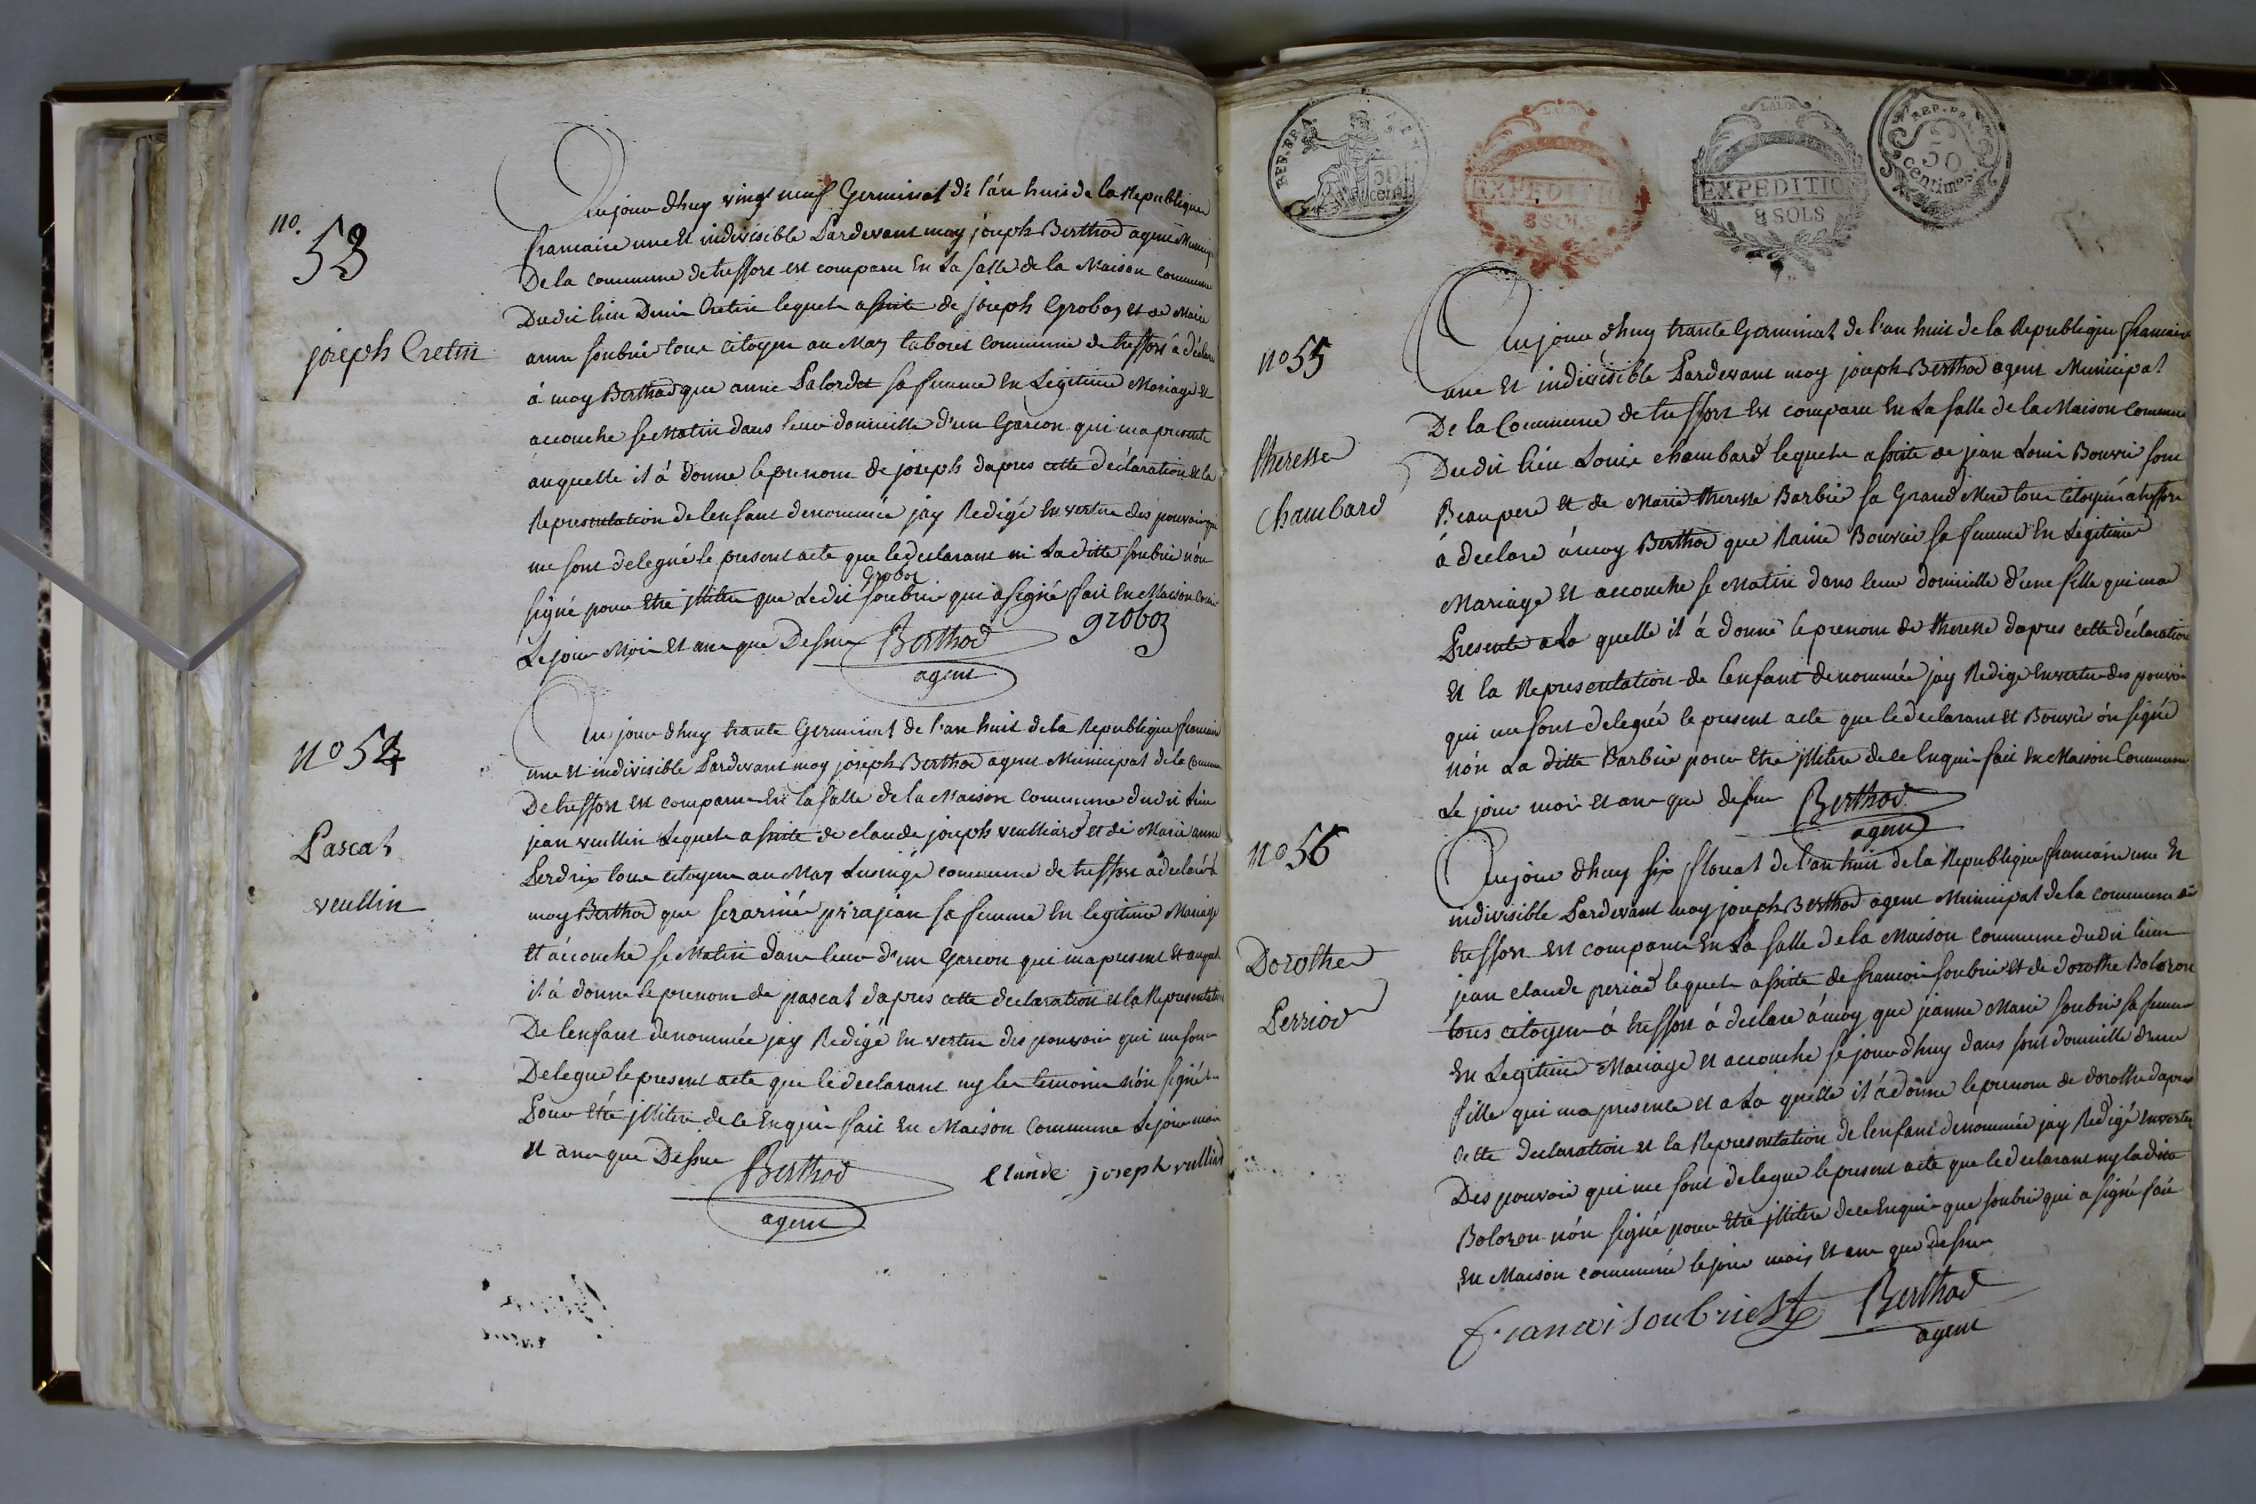 no.
53
joseph Cretin
Aujourdhuy vingt neuf Germinal de l'an huit de la Republique
francaise une et indivisible Pardevant moy joseph Berthod agent Municip
De la commune de treffort est comparu En La salle de la Maison commune
Dudit lieu Denis Cretin lequel assisté de joseph Groboz et de Marie
anne soubrie tous citoyen au Mas commune de treffort a déclaré
à moy Berthod que anne Palordet sa femme En Legitime Mariage et
accouche se Matin dans leur domicille d'un Garcon qui ma presenté
auquelle il à donne le prenom de joseph dapres cette déclaration et la
Representation de lenfant denommée jay Redigé En vertue des pouvoir qui
me sont delegué le present acte que le declarant ni La ditte soubrie n'on
signé pour Etre jllitere que Ledit Groboz soubrie qui à signé fait En Maison Commune
Le jour Moi et an que Dessus Berthod groboz
agent
No 54
Pascal
veullin
Aujourdhuy trante Germinal de l'an huit de la Republique francaise
une et indivisible Pardevant moy joseph Berthod agent Municipal de la Commune
De treffort est comparu En la salle de la Maison commune dudit Lieu
jean veullin Lequel assité de claude joseph veulliard et de Marie anne
Perdrix tous citoyen au Mas commune de treffort a declaré à
moy Berthod que sa femme En legitime Mariage
Et àccouche se Matin dans leur d'un Garcon qui ma presenté et auquel
il à donne le prenom de pascal dapres cette declaration et la Representation
De lenfant denommée jay Redigé En vertue des pouvoir qui me sont
Delegué le present acte que le declarant ny les temoins n'on signé
Pour Etre jllitere de ce Enquis fait En Maison Commune Le jour moi
Et an que Dessus Berthod claude joseph vulliard
agent
REP. FRA.
50
cent.
LA LOI
EXPEDITION
8 SOLS
LA LOI
EXPEDITION
8 SOLS
REP. FRA.
50
centimes
No 55
theresse
Chambard
Aujourdhuy trante Germinal de l'an huit de la Republique francaise
une et indivisible Pardevant moy joseph Berthod agent Municipal
De la Commune de treffort Est comparu En La salle de la Maison Commune
Dudit lieu Louis chambard lequel assisté de jean Louis Bouvier son
Beaupere et de Marie theresse Barbier sa Grand Mere tous citoyen à treffort
à declare à moy Berthod que Bouvier sa femme En Legitime
Mariage Et accouche se Matin dans leur domicille d'une fille qui ma
Presente a La quelle il à donné le prenom de theresse dapres cette déclaration
et la Representation de lenfant denommée jay Redige En vertue des pouvoir
qui me sont delegué le present acte que le declarant et Bouvier ón signé
nón La ditte Barbier pour Etre jllitere de ce Enquis fait En Maison Commune
Le jour moi et an que dessus Berthod
agent
No 56
Dorothe
Perriod
Aujourdhuy six floreal de l'an huit de la Republique francaise une Et
indivisible Pardevant moy joseph Berthod agent Municipal de la commune de
treffort est comparu En La salle de la Maison commune dudit lieu
jean claude periad lequel assité de francois soubrie et de dorothe Bolozon
tous citoyen à treffort à declare à moy que jeanne Marie soubrie sa femme
En Legitime Mariage et accouche se jourdhuy dans sont domicille d'une
fille qui ma presente et a La quelle il à donne le prenom de dorothe dapres
cette declaration et la Representation de lenfant denommée jay Redigé En vertue
Des pouvoir qui me sont delegué le present acte que le declarant ny la dite
Bolozon nón signé pour Etre jllitere de ce Enquis que soubrie qui a signé fait
En Maison commune le jour mois et an que dessus
francoi soubrie Berthod
agent